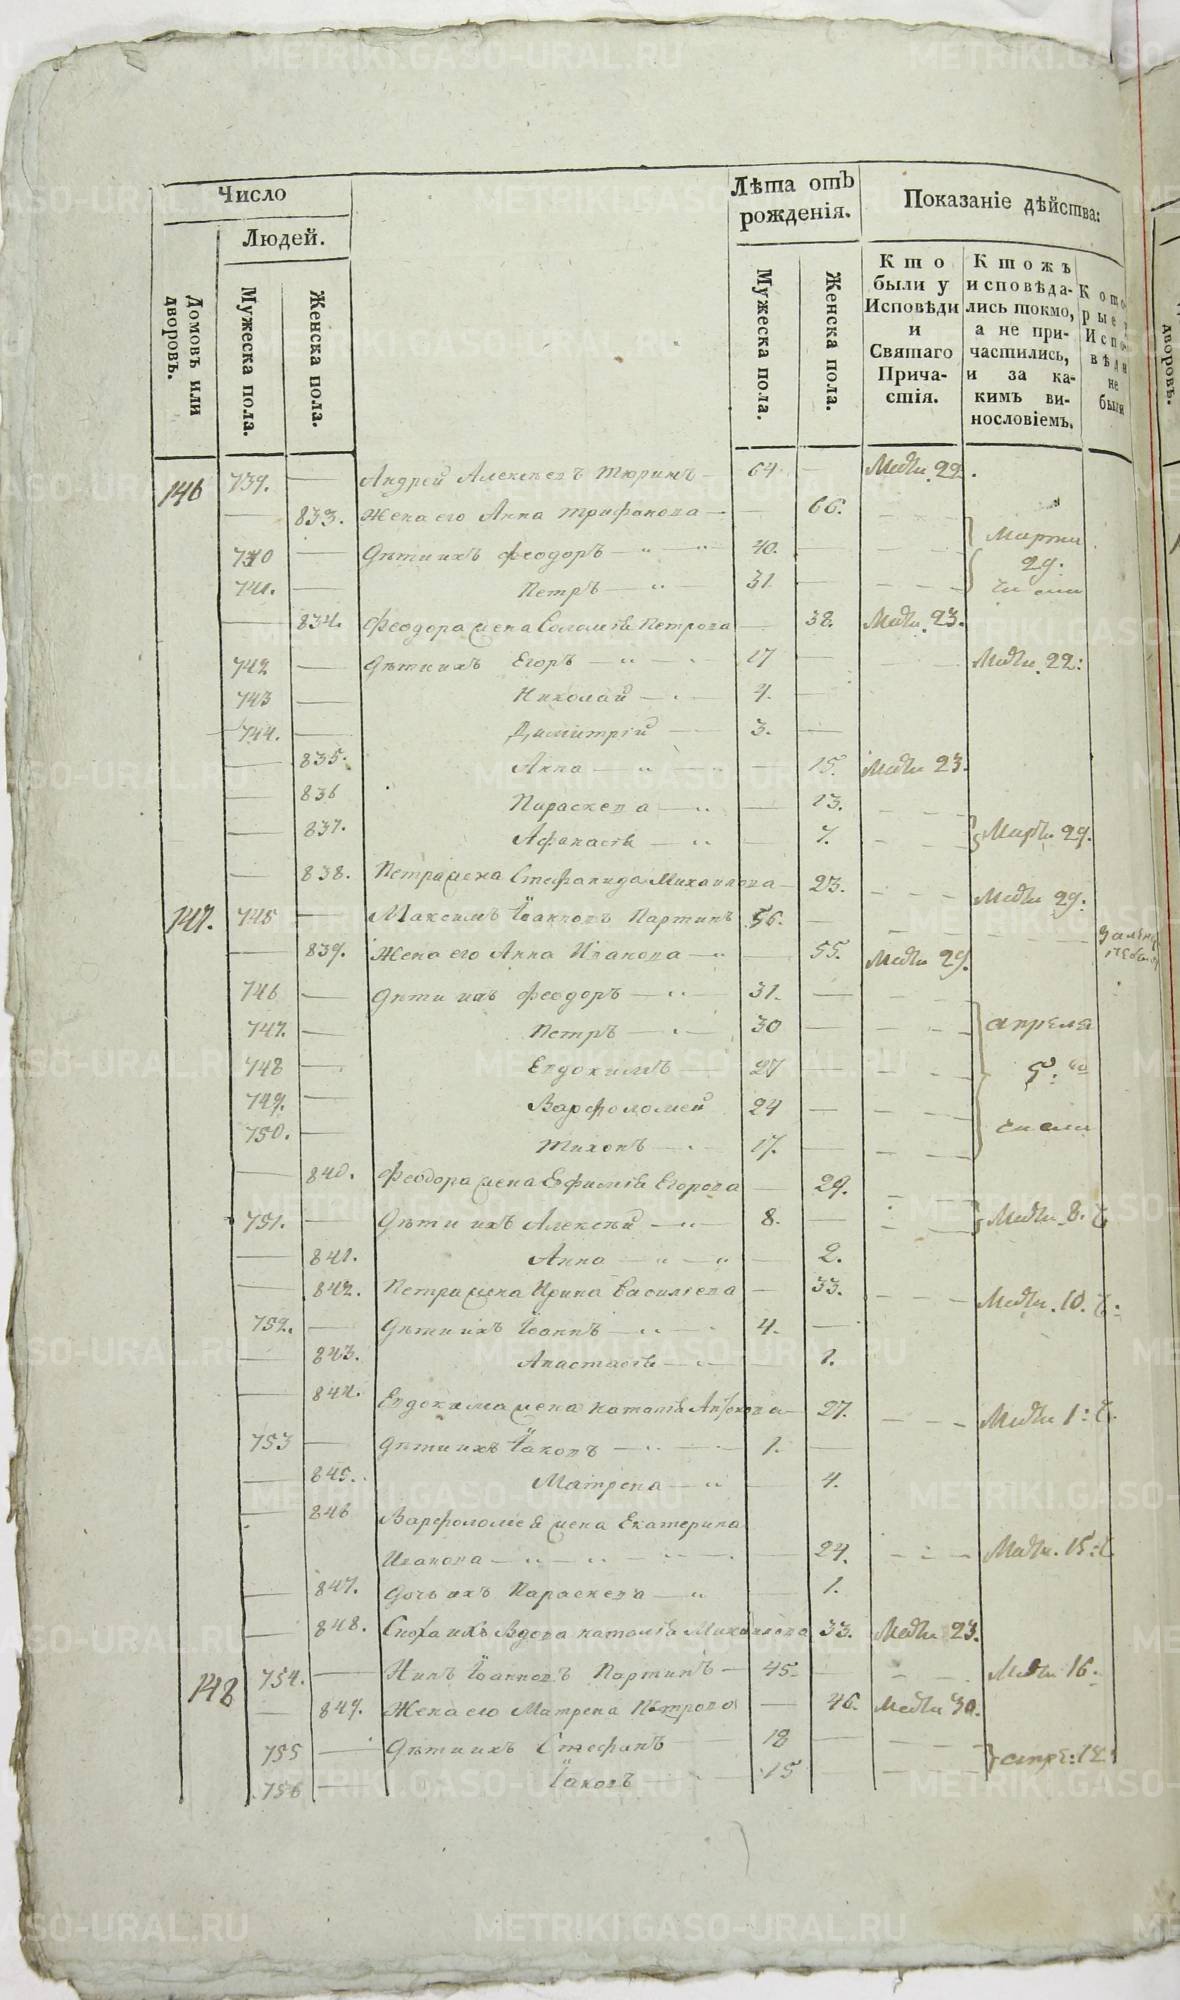 Число
Людей.
Лѣта отъ
рожденія.
Показаніе дѣйства:
Домовъ или
дворовъ.
Мужеска пола.
Женска пола.
Мужеска пола.
Женска пола.
Кто
были у
Исповѣди
и
Святаго
Прича-
стія.
Ктожъ
исповѣда-
лись токмо,
а не при-
частились,
и за ка-
кимъ ви-
нословіемъ.
Кото-
рые у
Испо-
вѣди
не
были
146 739. — Андрей Алексѣевъ Тюринъ — 64 —
— 833. Жена его Анна Трифанова — 66.
740 — Дѣти ихъ Феодоръ — 40. — Марта
741. — Петръ — 31 — 29.
— 834. Феодора жена Соломѣя Петрова — 38. 23.
742 — Дѣти ихъ Егоръ — 17 — 22:
743 — Николай — 4. —
744. — Димитрій — 3. —
— 835. Анна — 15. 23.
— 836 Параскева — 13.
— 837. Афанасія — 7. 29.
— 838. Петра жена Стефанида Михаилова — 23. 29.
147. 745 — Максимъ Іоанновъ Партинъ 56. —
— 839. Жена его Анна Иванова — 55. 29.
746 — Дѣти ихъ Феодоръ — 31. —
747. — Петръ — 30 — апреля
748 — Евдокимъ — 27 —
749. — Варфоломей 24 —
750. — Тихонъ — 17. —
— 840. Феодора жена Ефимія Егорова — 29.
751. — Дѣти ихъ Алексѣй — 8. — 8.
— 841. Анна — 2.
— 842. Петра жена Ирина Василіева — 33. 10.
752. — Дѣти ихъ Іоаннъ — 4. —
— 843. Анастасія — 1.
— 844. Евдокима жена Наталія — 27. 1:
753 — Дѣти ихъ Іаковъ — 1.
— 845. Матрена — 4.
— 846 Варфоломея жена Екатерина
Иванова — 24. 15:
— 847. Дочь ихъ Параскева — 1.
— 848. Сноха ихъ Вдова Наталія Михаилова 33. 23.
148 754. — Нилъ Іоанновъ Партинъ — 45. 16.
— 849. Жена его Матрена Петрова — 46. 30.
755 — Дѣти ихъ Стефанъ 18 —
756 — Іаковъ 15 —
дворовъ.
METRIKI.GASO-URAL.RU